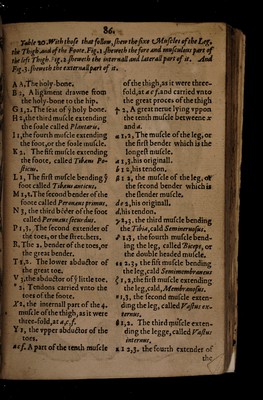 86.
Table 20. With those that follow, shew the fore Muscles of the Leg,
the Thigh and of the Foote. Fig. 1 sheweth the fore and musculous part of
the left Thigh. Fig. 2 sheweth the internall and laterall part of it. And
Fig. 3. sheweth the externall part of it.
A A, The holy-bone.
B 2, A ligament drawne from
the holy-bone to the hip.
G 1,2. The seat of ye holy bone.
H 2, the third muscle extending
the soule called Plantaris.
I 1, the fourth muscle extending
the foot, or the soule muscle.
K 2. The fift muscle extending
the foote, called Tibæus Posticus.
L 2, The first muscle bending ye
foot called Tibæus anticus.
M 2,3. The second bender of the
foote called Peronæus primus.
N 3, the third bẽder of the foot
called Peronæus secundus.
P 1,3. The second extender of
the toes, or the stretchers.
R. The 2. bender of the toes, or
the great bender.
T 1,2. The lower abductor of
the great toe.
V 3, the abductor of ye little toe.
* 2. Tendons carried vnto the
toes of the foote.
X 2, the internall part of the 4.
muscle of the thigh, as it were
three-fold, at a c f.
Y 2, the vpper abductor of the
toes.
a c f. A part of the tenth muscle
of the thigh, as it were threefold,
at a c f, and carried vnto
the great proces of the thigh
2, A great nerue lying vppon
the tenth muscle betweene x
and u.
2,3, The muscle of the leg, or
the first bender which is the
longest muscle.
3, his originall.
b 2 his tendon.
2, the muscle of the leg, or
the second bender which is
the slender muscle.
3, his originall,
d, his tendon.
2,3, the third muscle bending
the Tibia, cald Seminervosus.
1,3, the fourth muscle bending
the leg, called Biceps, or
the double headed muscle.
2,3, the fift muscle bending
the leg, cald Semimembraneus
1,2, the first muscle extending
the leg, cald, Membranosus.
1,3, the second muscle extending
the leg, called Vastus externus.
1,2. The third muscle extending
the legge, called Vastus
internus,
1 2,3, the fourth extender of
the